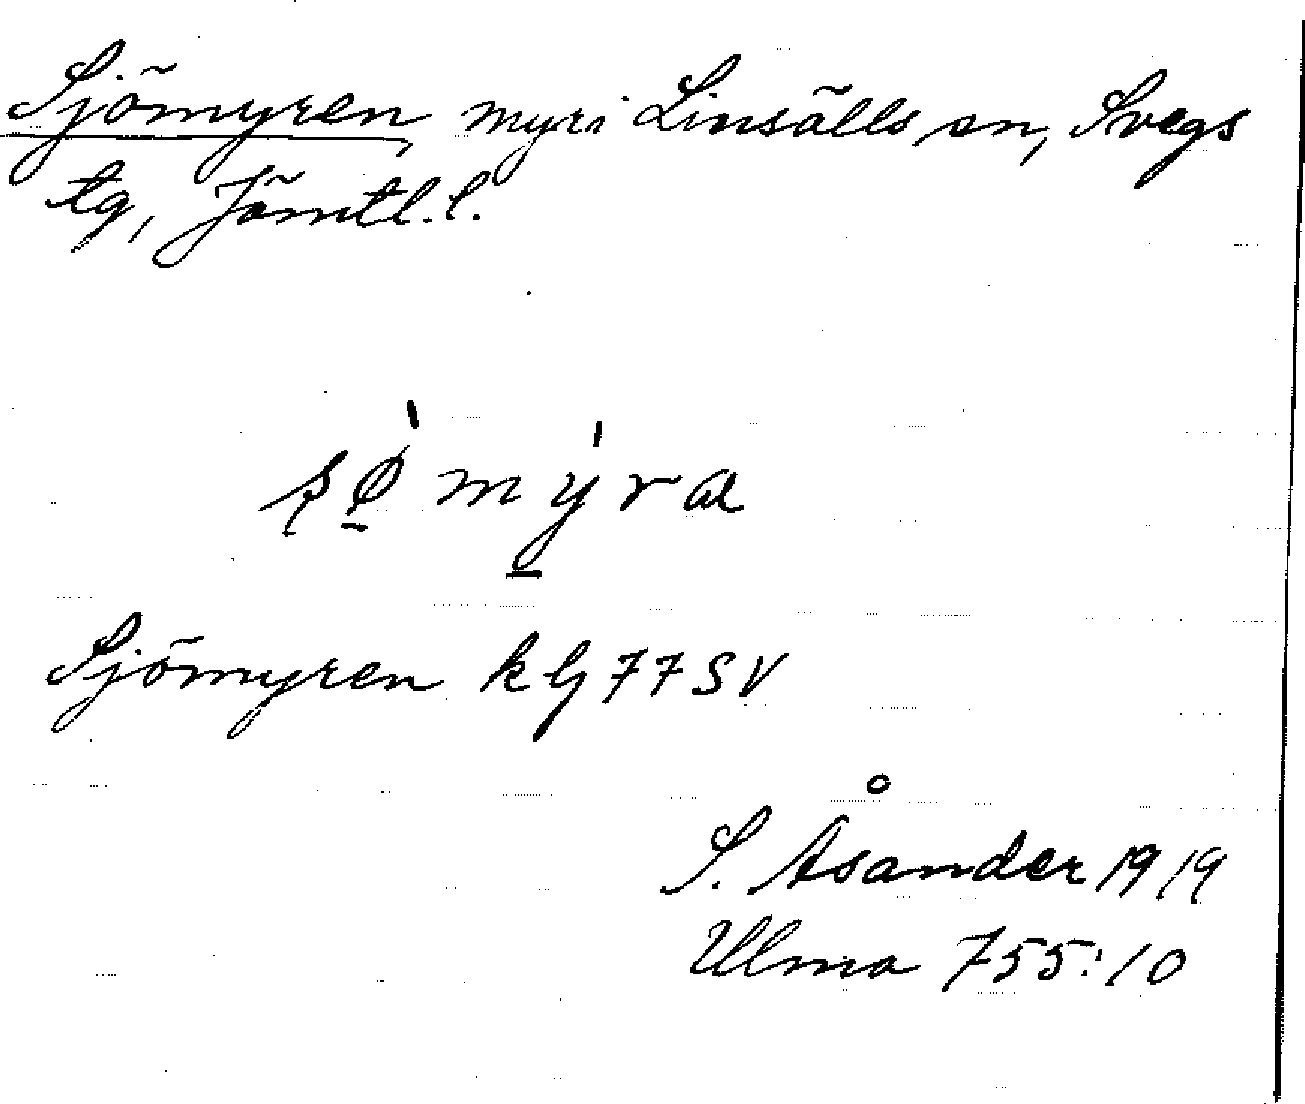 Sjömyren, myr i Linsälls sn, Svegs
tg, Jämtl. l.
sø̀mýra
Sjömyren kbl 77 SV
S. Åsander 1919
Ulma 755:10